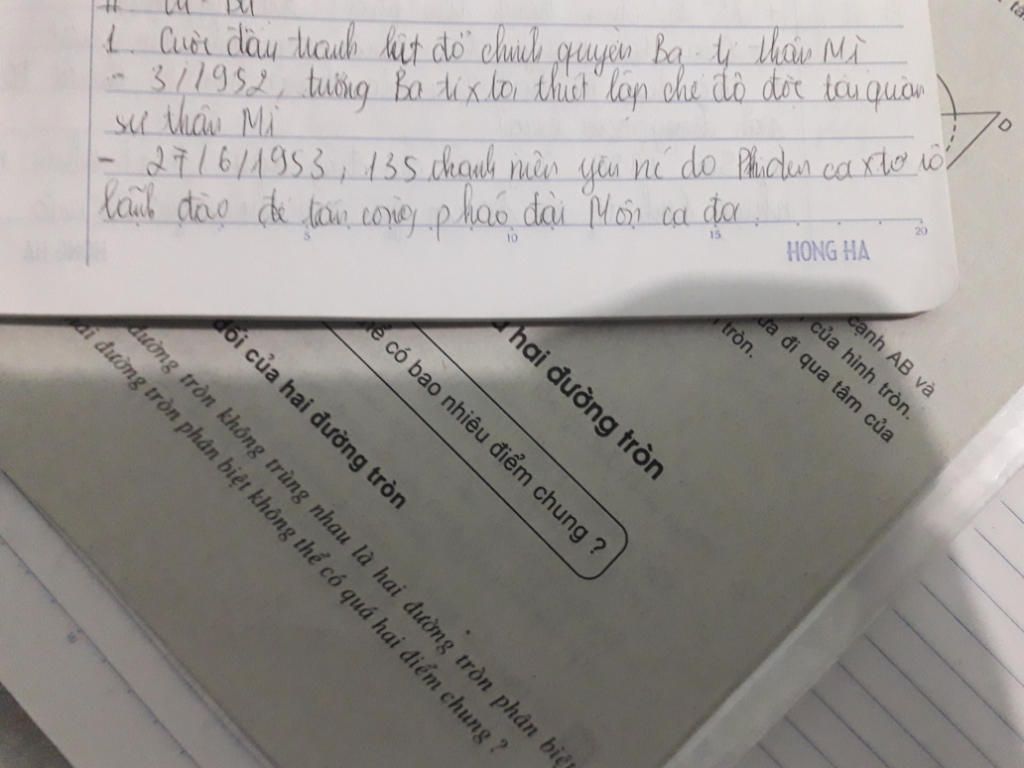 1. Cuộc đấu tranh lật đổ chính quyền Ba-ti thân Mĩ
- 3/1952, tướng Batixta thiết lập chế độ độc tài quân
sự thân Mĩ
- 27/6/1953, 135 thanh niên yêu nc do Phiđen caxtơ rô
lãnh đạo đã tấn công pháo đài Môn ca đa
5 10 15 20
HONG HA
D
cạnh AB và
của hình tròn.
ưa đi qua tâm của
tròn.
hai đường tròn
có bao nhiêu điểm chung ?
đối của hai đường tròn
đường tròn không trùng nhau là hai đường tròn phân biệt
đường tròn phân biệt không thể có quá hai điểm chung ?